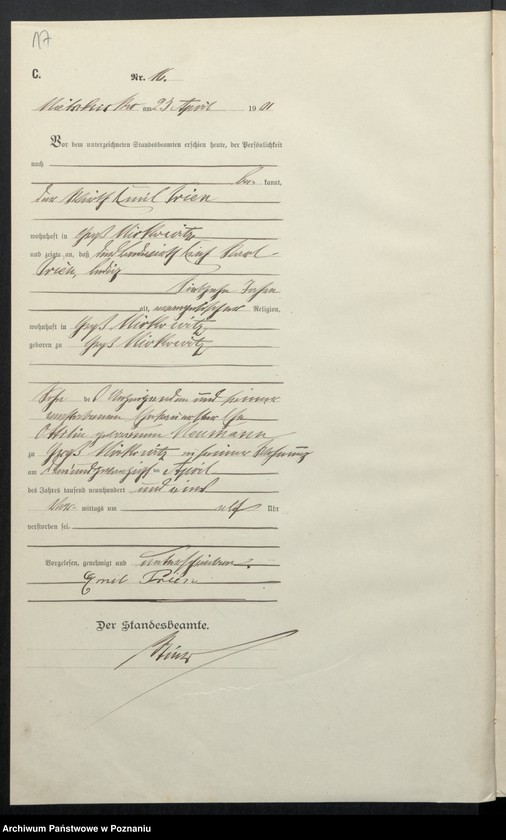 17
C.
Nr. 16.
am 23 April 1901
Vor dem unterzeichneten Standesbeamten erschien heute, der Persönlichkeit
nach
be= kannt,
der Wirth Emil Prien
wohnhaft in Groß Mirkowitz
und zeigte an, daß Karl
Prien, ledig
Jahre
alt, evangelischer Religion,
wohnhaft in Groß Mirkowitz
geboren zu Groß Mirkowitz
Sohn de s Anzeigenden und seiner
verstorbenen Ehefrau erster Ehe
Ottilie geborenen Neumann
zu Groß Mirkowitz in seiner Wohnung
am April
des Jahres tausend neunhundert und eins
Vor= mittags um elf Uhr
verstorben sei.
Vorgelesen, genehmigt und unterschrieben.
Emil Prien
Der Standesbeamte.
Archiwum Państwowe w Poznaniu